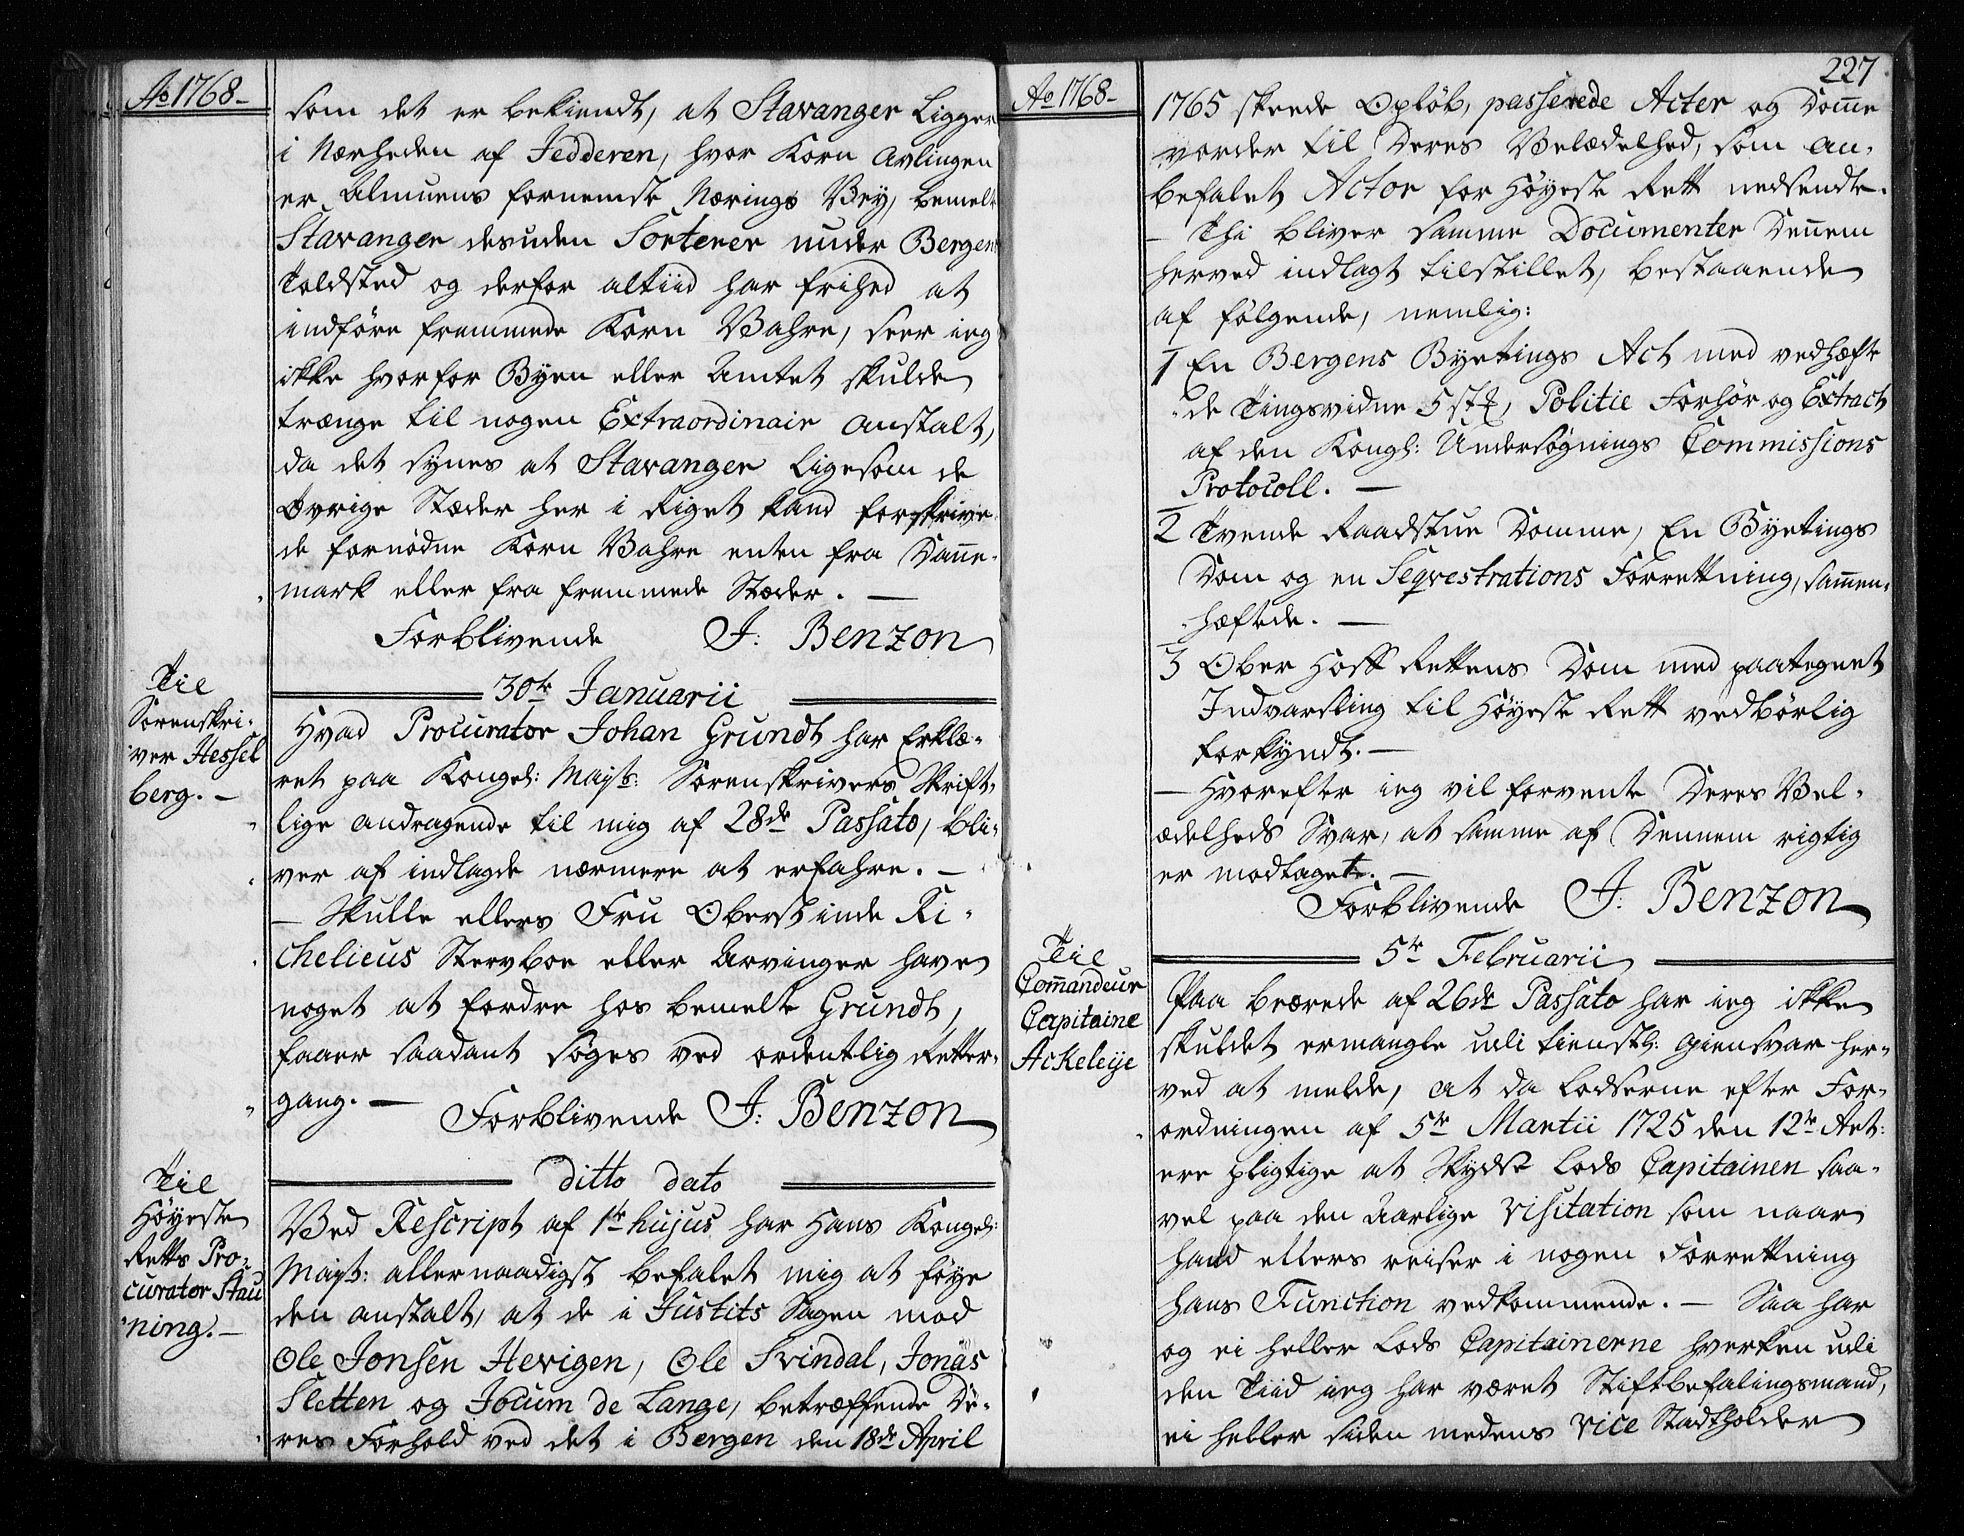 Ao 1768-
som det er bekiendt, at Stavanger Ligger
i Nærheden af Jedderen, hvor Korn Avlingen
er Almuens fornemste Nærings Vey, bemelte
Stavanger desuden Sorterer under Bergens
Toldsted og derfor altiid har frihed at
indføre fremmede Korn Vahre, seer ieg
ikke hvorfor Byen eller Amtet skulde
trænge til nogen Extraordinair Anstalt,
da det synes at Stavanger Ligesom de
Øvrige Stæder her i Riget kand forskrive
de fornødne Korn Vahre enten fra Danne-
mark eller fra fremmede Stæder. —
Forblivende J: Benzon
Til
Sorenskri-
ver Hessel
berg. —
30te Januarii
Hvad Procurator Johan Grundt har Erklæ-
ret paa Kongel: Mayts: Sorenskrivers Skrift-
lige andragende til mig af 28de Passato, bli-
ver af indlagde nærmere at erfahre. —
— Skulle ellers Fru Oberstinde Ri-
chelieus Stervboe eller Arvinger have
noget at fordre hos bemelte Grundt,
faaer saadant søges ved ordentlig Retter-
gang. — Forblivende J: Benzon
Til
Høyeste
Retts Pro-
curator Stau
ning. —
ditto dato
Ved Rescript af 1te hujus har Hans Kongel:
Mayt: allernaadigst befalet mig at føye
den anstalt, at de i Justits Sagen mod
Ole Jonsen Hevigen, Ole Svindal, Jonas
Sletten og Jocum de Lange, betræffende De-
res Forhold ved det i Bergen den 18de April
227
Ao 1768-
1765 skeede Opløb, passerede Acter og Domme
vorder til Deres Velædelhed, som an-
befalet Actor for Høyeste Rett nedsendte.
— Thi bliver samme Documenter Dennem
herved indlagt tilstillet, bestaaende
af følgende, nemlig:
1 En Bergens Byetings Act med vedhæfte
de Tingsvidne 5 stk, Politie Forhør og Extract
af den Kongl: Undersøgnings Commissions
Protocoll. —
2 Tvende Raadstue Domme, En Byetings
Dom og en Seqvestrations Forrettning, sammen-
hæftede. —
3 Ober Hoff Rettens Dom med paategnet
Indvarsling til Høyeste Rett vedbørlig
forkyndt. —
— Hvorefter ieg vil forvente Deres Vel-
ædelheds Svar, at samme af Dennem rigtig
er modtaget. —
Forblivende J: Benzon
Til
Commandeur
Capitaine
Ackeleije
5te Februarii
Paa beærede af 26de Passato har ieg ikke
skuldet ermangle udi tienstl: giensvar her-
ved at melde, at da Lodserne efter For-
ordningen af 5te Martii 1725 den 12te Art:
ere pligtige at Skydse Lods Capitainen saa-
vel paa den Aarlige Visitation som naar
hand ellers reiser i nogen Forrettning
hans Function vedkommende. — Saa har
og ei heller Lods Capitainerne hverken udi
den Tiid ieg har været Stiftbefalingsmand,
ei heller siden medens Vice Stadtholder